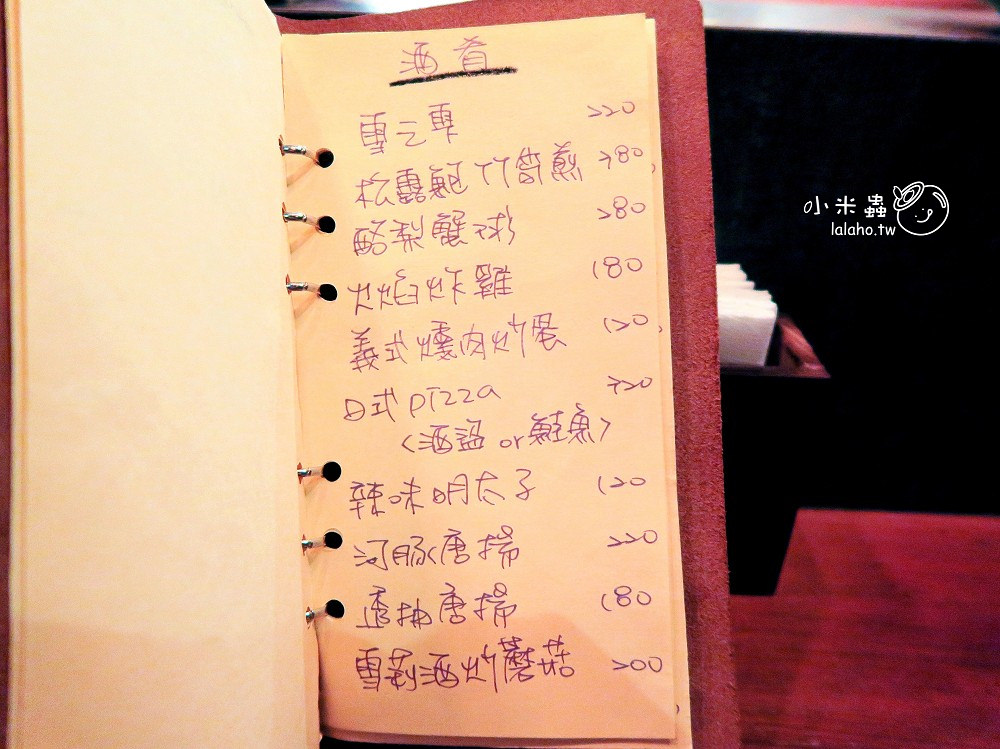 酒肴
雪之 220
松露鮑竹筒煎 280
酪梨蟹球 280
火焰炸雞 180
義式燻肉炒蛋 120
日式pizza 220
<酒盜 or 鮭魚>
辣味明太子 120
河豚唐揚 220
透抽唐揚 180
雪莉酒炒蘑菇 200
小米蟲
lalaho.tw